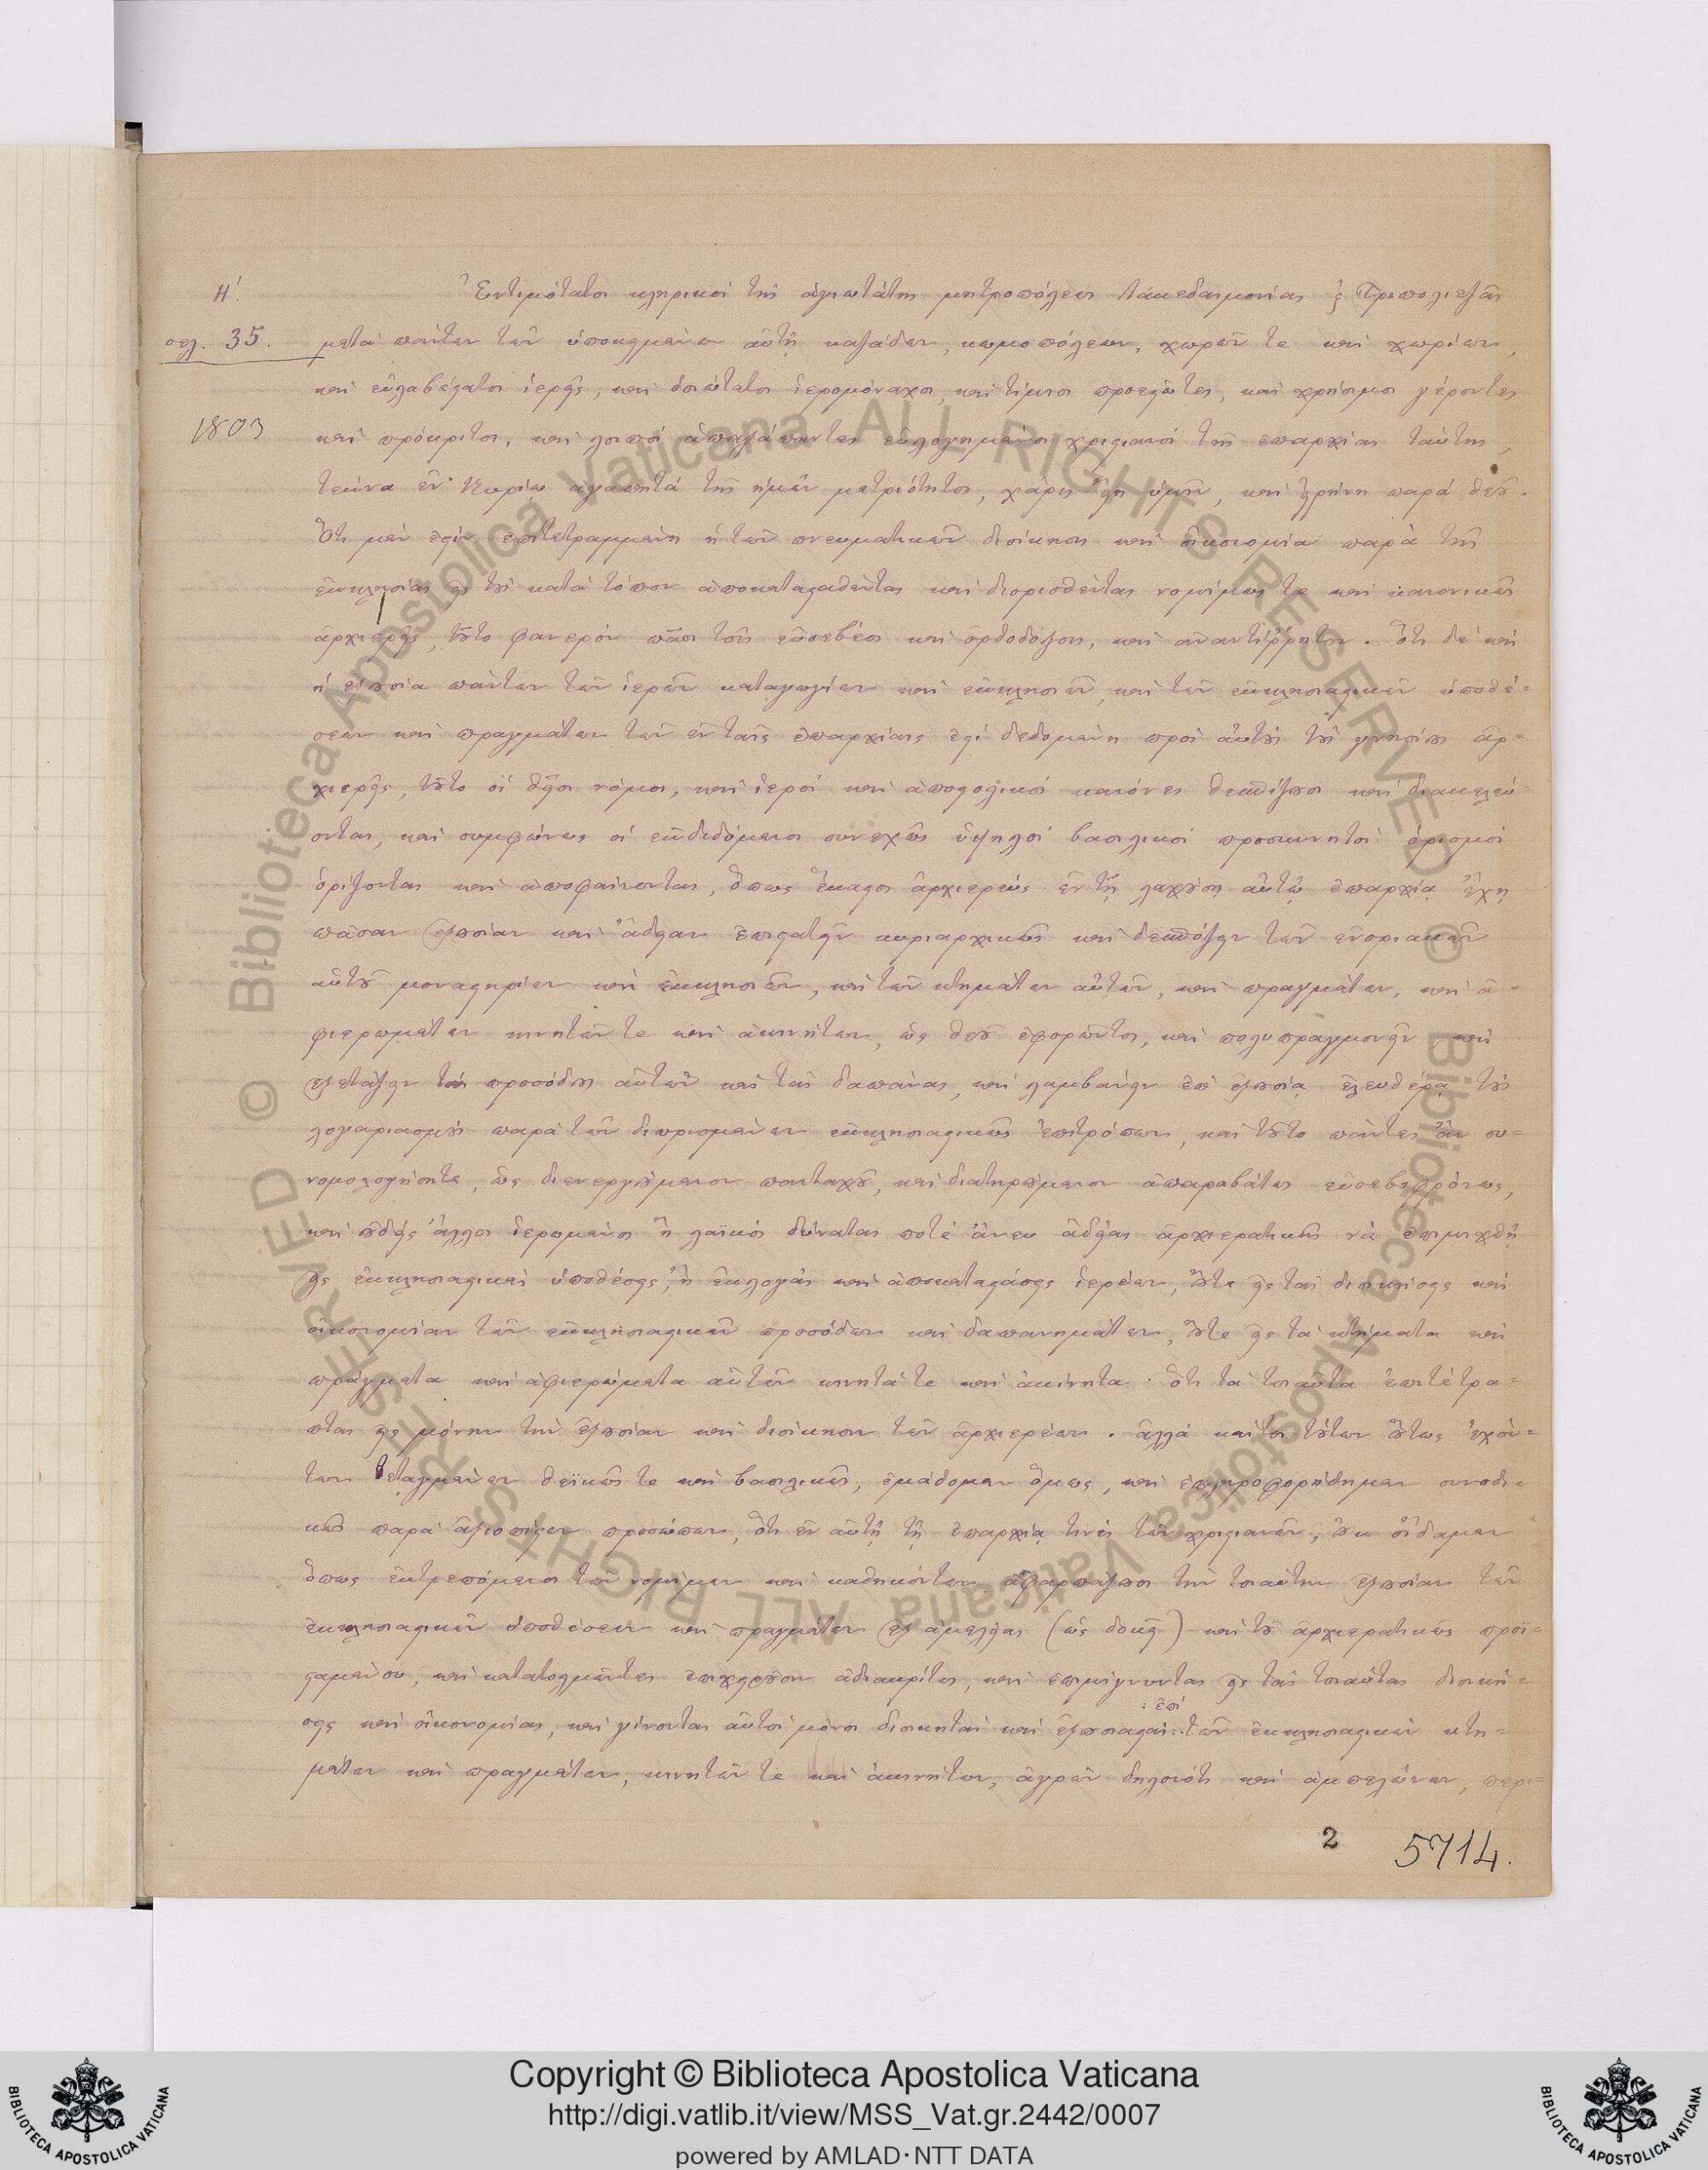 Η΄.
σελ. 35.
1803
Ἐντιμότατοι κληρικοὶ τῆς ἁγιωτάτης μητροπόλεως Λακεδαιμονίας ϗ Τριπολιτζᾶς
μετὰ πάντων τῶν ὑποκειμένων αὐτῇ καζάδων, κωμοπόλεων, χωρῶν τε καὶ χωρίων,
καὶ εὐλαβέστατοι ἱερεῖς, καὶ ὁσιώτατοι ἱερομόναχοι, καὶ τίμιοι προεστῶτες, καὶ χρήσιμοι γέροντες
καὶ πρόκριτοι, καὶ λοιποὶ ἁπαξάπαντες εὐλογημένοι χριστιανοὶ τῆς ἐπαρχίας ταύτης,
τέκνα ἐν Κυρίῳ ἀγαπητὰ τῆς ἡμῶν μετριότητος, χάρις εἴη ὑμῖν, καὶ εἰρήνη παρὰ Θεοῦ.
Ὅτι μὲν ἐστὶν ἐπιτετραμμένη ἡ τῶν πνευματικῶν διοίκησις καὶ οἰκονομία παρὰ τῆς
ἐκκλησίας εἰς τοὺς κατὰ τόπον ἀποκατασταθέντας καὶ διορισθέντας νομίμως τε καὶ κανονικῶς
ἀρχιερεῖς, τοῦτο φανερὸν πᾶσι τοῖς εὐσεβέσι καὶ ὀρθοδόξοις, καὶ ἀναντίῤῥητον. Ὅτι δὲ καὶ
ἡ ἐξουσία πάντων τῶν ἱερῶν καταγωγίων καὶ ἐκκλησιῶν, καὶ τῶν ἐκκλησιαστικῶν ὑποθέ=
σεων καὶ πραγμάτων τῶν ἐν ταῖς ἐπαρχίαις ἐστὶ δεδομένη πρὸς αὐτοὺς τοὺς γνησίους ἀρ=
χιερεῖς, τοῦτο οἱ θεῖοι νόμοι, καὶ ἱεροὶ καὶ ἀποστολικοὶ κανόνες θεσπίζουσι καὶ διακελεύ=
ονται, καὶ συμφώνως οἱ ἐκδιδόμενοι συνεχῶς ὑψηλοὶ βασιλικοὶ προσκυνητοὶ ὁρισμοὶ
ὁρίζονται καὶ ἀποφαίνονται, ὅπως ἕκαστος ἀρχιερεὺς ἐν τῇ λαχούσῃ αὐτῷ ἐπαρχίᾳ ἔχῃ
πᾶσαν ἐξουσίαν καὶ ἄδειαν ἐπιστατεῖν κυριαρχικῶς καὶ δεσπόζειν τῶν ἐνοριακῶν
αὐτοῦ μοναστηρίων καὶ ἐκκλησιῶν, καὶ τῶν κτημάτων αὐτῶν, καὶ πραγμάτων, καὶ ἀ=
φιερωμάτων κινητῶν τε καὶ ἀκινήτων, ὡς Θεοῦ ἐφορῶντος, καὶ πολυπραγμονεῖν καὶ
ἐξετάζειν τὰς προσόδους αὐτῶν καὶ τὰς δαπάνας, καὶ λαμβάνειν ἐπ' ἐξουσίᾳ ἐλευθέρᾳ τοὺς
λογαριασμοὺς παρὰ τῶν διωρισμένων ἐκκλησιαστικῶς ἐπιτρόπων, καὶ τοῦτο πάντες ἂν συ=
νομολογήσητε, ὡς διενεργούμενον πανταχοῦ, καὶ διατηρούμενον ἀπαραβάτως εὐσεβοφρόνως,
καὶ οὐδεὶς ἄλλος ἱερωμένος ἢ λαϊκὸς δύναται ποτὲ ἄνευ ἀδείας ἀρχιερατικῆς νὰ ἐπιμιχθῇ
εἰς ἐκκλησιαστικὰς ὑποθέσεις, ἢ ἐκλογὰς καὶ ἀποκαταστάσεις ἱερέων, οὔτε εἰς τὰς διοικήσεις καὶ
οἰκονομίας τῶν ἐκκλησιαστικῶν προσόδων καὶ δαπανημάτων, οὔτε εἰς τὰ κτήματα καὶ
πράγματα καὶ ἀφιερώματα αὐτῶν κινητά τε καὶ ἀκίνητα· ὅτι τὰ τοιαῦτα ἐπιτέτρα=
πται εἰς μόνην τὴν ἐξουσίαν καὶ διοίκησιν τῶν ἀρχιερέων. ἀλλὰ καίτοι τούτων οὕτως ἐχόν=
των τεταγμένων θεϊκῶς τε καὶ βασιλικῶς, ἐμάθομεν ὅμως, καὶ ἐπληροφορήθημεν συνοδι=
κῶς παρὰ ἀξιοπίστων προσώπων, ὅτι ἐν αὐτῇ τῇ ἐπαρχίᾳ τινὲς τῶν χριστιανῶν, οὐκ οἴδαμεν
ὅπως ἐκτρεπόμενοι τῶν νομίμων καὶ καθηκόντων, ἀφαρπάζουσι τὴν τοιαύτην ἐξουσίαν τῶν
ἐκκλησιαστικῶν ὑποθέσεων καὶ πραγμάτων ἐξ ἀμελείας (ὡς δοκεῖ) καὶ τοῦ ἀρχιερατικῶς προϊ=
σταμένου, καὶ κατατολμῶντες ἐπιχειροῦσιν ἀδιακρίτως, καὶ ἐπιμίγνυνται εἰς τὰς τοιαύτας διοική=
σεις καὶ οἰκονομίας, καὶ γίνονται αὐτοὶ μόνοι διοικηταὶ καὶ ἐξουσιασταὶ :ἐπὶ: τῶν ἐκκλησιαστικῶν κτη=
μάτων καὶ πραγμάτων, κινητῶν τε καὶ ἀκινήτων, ἀγρῶν δηλονότι καὶ ἀμπελώνων, περι=
2 5714.
Copyright © Biblioteca Apostolica Vaticana
http://digi.vatlib.it/view/MSS_Vat.gr.2442/0007
powered by AMLAD·NTT DATA
BIBLIOTECA APOSTOLICA VATICANA
BIBLIOTECA APOSTOLICA VATICANA